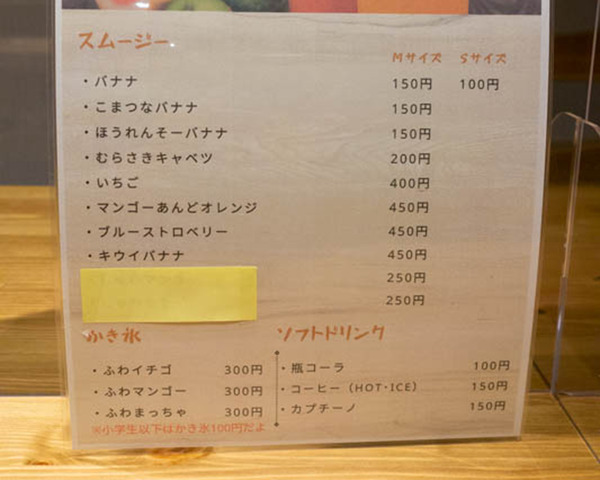 スムージー
Mサイズ Sサイズ
・バナナ 150円 100円
・こまつなバナナ 150円
・ほうれんそーバナナ 150円
・むらさきキャベツ 200円
・いちご 400円
・マンゴーあんどオレンジ 450円
・ブルーストロベリー 450円
・キウイバナナ 450円
250円
250円
かき氷
・ふわイチゴ 300円
・ふわマンゴー 300円
・ふわまっちゃ 300円
※小学生以下はかき氷100円だよ
ソフトドリンク
・瓶コーラ 100円
・コーヒー（HOT・ICE） 150円
・カプチーノ 150円